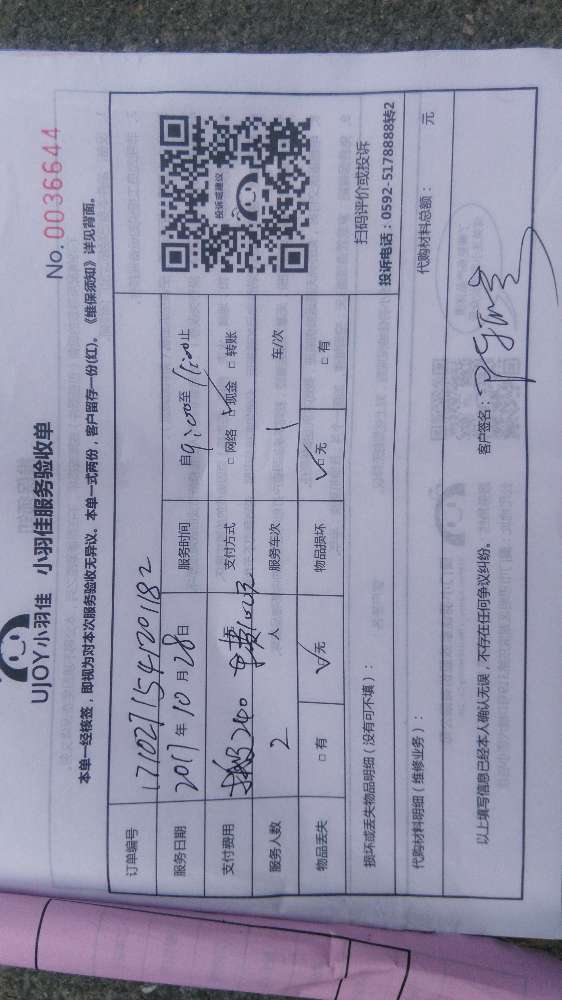 UJOY小羽佳 小羽佳服务验收单
No. 0036644
本单一经核签，即视为对本次服务验收无异议。本单一式两份，客户留存一份(红)。《维保须知》详见背面。
订单编号 1710271541201182
服务日期 2017年10月28日 服务时间 自9:00至11:00止
支付费用 240 支付方式 □网络 □现金 □转账
服务人数 2 人 服务车次 1 车/次
物品丢失 □有 □无 物品损坏 □无 □有
投诉或建议
扫码评价或投诉
投诉电话：0592-5178888转2
损坏或丢失物品明细（没有可不填）：
代购材料明细（维修业务）： 代购材料总额： 元
以上填写信息已经本人确认无误，不存在任何争议纠纷。 客户签名：